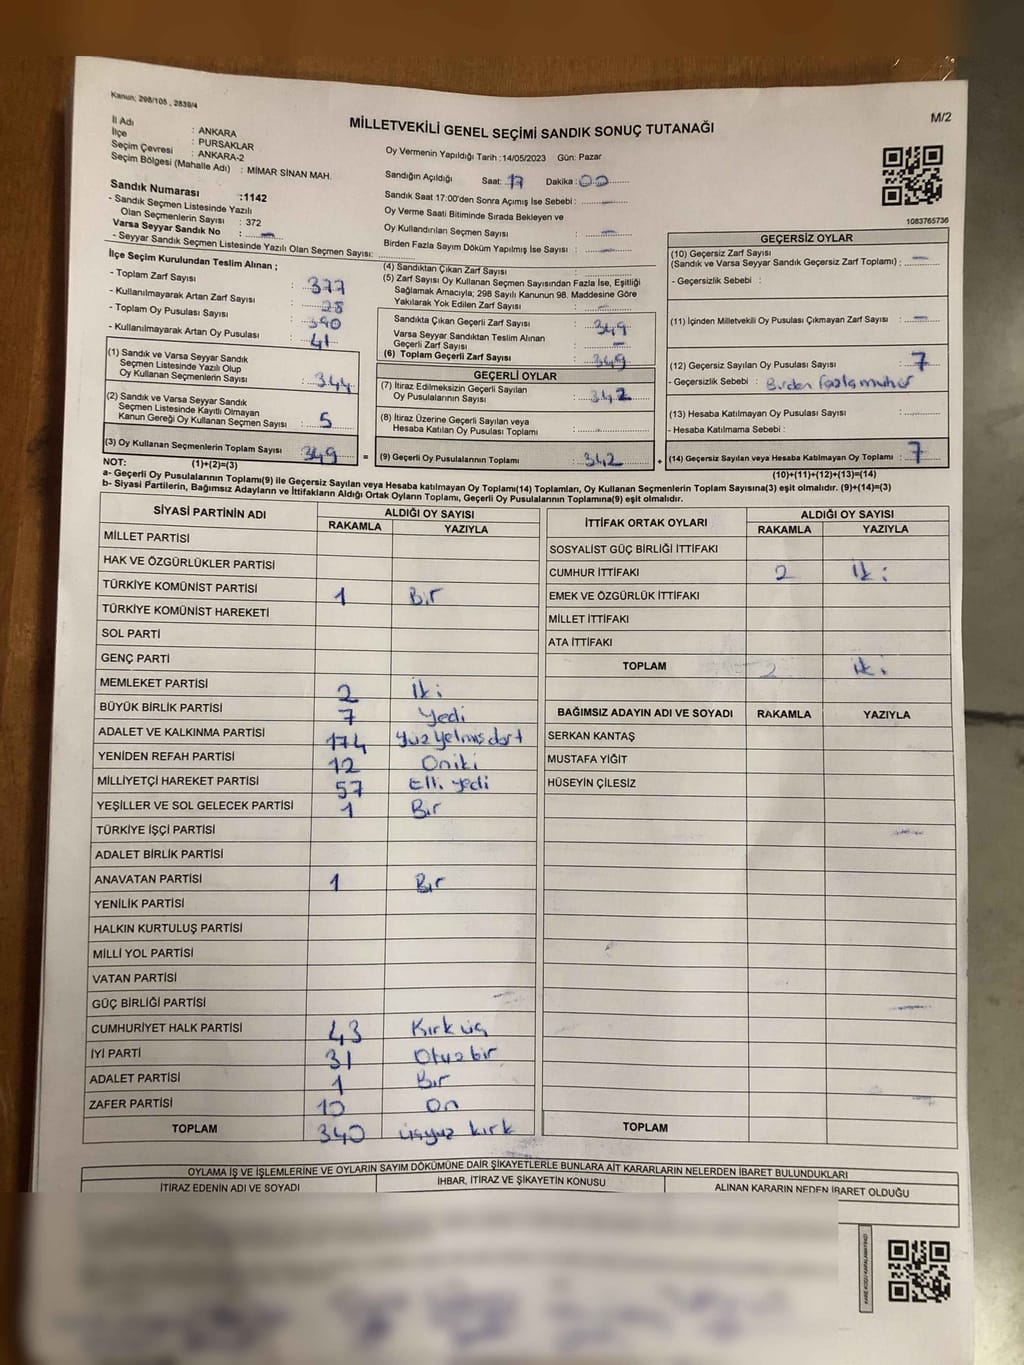 Kanun; 298/105 , 2839/4
M/2
MİLLETVEKİLİ GENEL SEÇİMİ SANDIK SONUÇ TUTANAĞI
İl Adı : ANKARA
İlçe : PURSAKLAR
Seçim Çevresi : ANKARA-2
Seçim Bölgesi (Mahalle Adı) : MİMAR SİNAN MAH.
Sandık Numarası :1142
- Sandık Seçmen Listesinde Yazılı
Olan Seçmenlerin Sayısı : 372
Varsa Seyyar Sandık No : —
- Seyyar Sandık Seçmen Listesinde Yazılı Olan Seçmen Sayısı:
Oy Vermenin Yapıldığı Tarih :14/05/2023 Gün: Pazar
Sandığın Açıldığı Saat: 17 Dakika : 00
Sandık Saat 17:00'den Sonra Açımış İse Sebebi : —
Oy Verme Saati Bitiminde Sırada Bekleyen ve
Oy Kullandırılan Seçmen Sayısı : —
Birden Fazla Sayım Döküm Yapılmış İse Sayısı : —
1083765736
İlçe Seçim Kurulundan Teslim Alınan ;
- Toplam Zarf Sayısı : 377
- Kullanılmayarak Artan Zarf Sayısı : 28
- Toplam Oy Pusulası Sayısı : 390
- Kullanılmayarak Artan Oy Pusulası : 41
(1) Sandık ve Varsa Seyyar Sandık
Seçmen Listesinde Yazılı Olup
Oy Kullanan Seçmenlerin Sayısı : 344
(2) Sandık ve Varsa Seyyar Sandık
Seçmen Listesinde Kayıtlı Olmayan
Kanun Gereği Oy Kullanan Seçmen Sayısı : 5
(3) Oy Kullanan Seçmenlerin Toplam Sayısı : 349
(1)+(2)=(3)
(4) Sandıktan Çıkan Zarf Sayısı :
(5) Zarf Sayısı Oy Kullanan Seçmen Sayısından Fazla İse, Eşitliği
Sağlamak Amacıyla; 298 Sayılı Kanunun 98. Maddesine Göre
Yakılarak Yok Edilen Zarf Sayısı : —
Sandıkta Çıkan Geçerli Zarf Sayısı : 349
Varsa Seyyar Sandıktan Teslim Alınan
Geçerli Zarf Sayısı : —
(6) Toplam Geçerli Zarf Sayısı : 349
GEÇERLİ OYLAR
(7) İtiraz Edilmeksizin Geçerli Sayılan
Oy Pusulalarının Sayısı : 342
(8) İtiraz Üzerine Geçerli Sayılan veya
Hesaba Katılan Oy Pusulası Toplamı :
= (9) Geçerli Oy Pusulalarının Toplamı : 342
GEÇERSİZ OYLAR
(10) Geçersiz Zarf Sayısı
(Sandık ve Varsa Seyyar Sandık Geçersiz Zarf Toplamı) : —
- Geçersizlik Sebebi :
(11) İçinden Milletvekili Oy Pusulası Çıkmayan Zarf Sayısı : —
(12) Geçersiz Sayılan Oy Pusulası Sayısı : 7
- Geçersizlik Sebebi : Birden fazla muhür
(13) Hesaba Katılmayan Oy Pusulası Sayısı :
- Hesaba Katılmama Sebebi :
+ (14) Geçersiz Sayılan veya Hesaba Katılmayan Oy Toplamı : 7
(10)+(11)+(12)+(13)=(14)
NOT:
a- Geçerli Oy Pusulalarının Toplamı(9) ile Geçersiz Sayılan veya Hesaba katılmayan Oy Toplamı(14) Toplamları, Oy Kullanan Seçmenlerin Toplam Sayısına(3) eşit olmalıdır. (9)+(14)=(3)
b- Siyasi Partilerin, Bağımsız Adayların ve İttifakların Aldığı Ortak Oyların Toplamı, Geçerli Oy Pusulalarının Toplamına(9) eşit olmalıdır.
SİYASİ PARTİNİN ADI ALDIĞI OY SAYISI
RAKAMLA YAZIYLA
MİLLET PARTİSİ
HAK VE ÖZGÜRLÜKLER PARTİSİ
TÜRKİYE KOMÜNİST PARTİSİ 1 Bir
TÜRKİYE KOMÜNİST HAREKETİ
SOL PARTİ
GENÇ PARTİ
MEMLEKET PARTİSİ 2 İki
BÜYÜK BİRLİK PARTİSİ 7 Yedi
ADALET VE KALKINMA PARTİSİ 174 Yüzyetmişdört
YENİDEN REFAH PARTİSİ 12 Oniki
MİLLİYETÇİ HAREKET PARTİSİ 57 Elli yedi
YEŞİLLER VE SOL GELECEK PARTİSİ 1 Bir
TÜRKİYE İŞÇİ PARTİSİ
ADALET BİRLİK PARTİSİ
ANAVATAN PARTİSİ 1 Bir
YENİLİK PARTİSİ
HALKIN KURTULUŞ PARTİSİ
MİLLİ YOL PARTİSİ
VATAN PARTİSİ
GÜÇ BİRLİĞİ PARTİSİ
CUMHURİYET HALK PARTİSİ 43 Kırk üç
İYİ PARTİ 31 Otuz bir
ADALET PARTİSİ 1 Bir
ZAFER PARTİSİ 10 On
TOPLAM 340 üçyüz kırk
İTTİFAK ORTAK OYLARI ALDIĞI OY SAYISI
RAKAMLA YAZIYLA
SOSYALİST GÜÇ BİRLİĞİ İTTİFAKI
CUMHUR İTTİFAKI 2 İki
EMEK VE ÖZGÜRLÜK İTTİFAKI
MİLLET İTTİFAKI
ATA İTTİFAKI
TOPLAM 2 iki
BAĞIMSIZ ADAYIN ADI VE SOYADI RAKAMLA YAZIYLA
SERKAN KANTAŞ
MUSTAFA YİĞİT
HÜSEYİN ÇİLESİZ
TOPLAM
OYLAMA İŞ VE İŞLEMLERİNE VE OYLARIN SAYIM DÖKÜMÜNE DAİR ŞİKAYETLERLE BUNLARA AİT KARARLARIN NELERDEN İBARET BULUNDUKLARI
İTİRAZ EDENİN ADI VE SOYADI İHBAR, İTİRAZ VE ŞİKAYETİN KONUSU ALINAN KARARIN NEDEN İBARET OLDUĞU